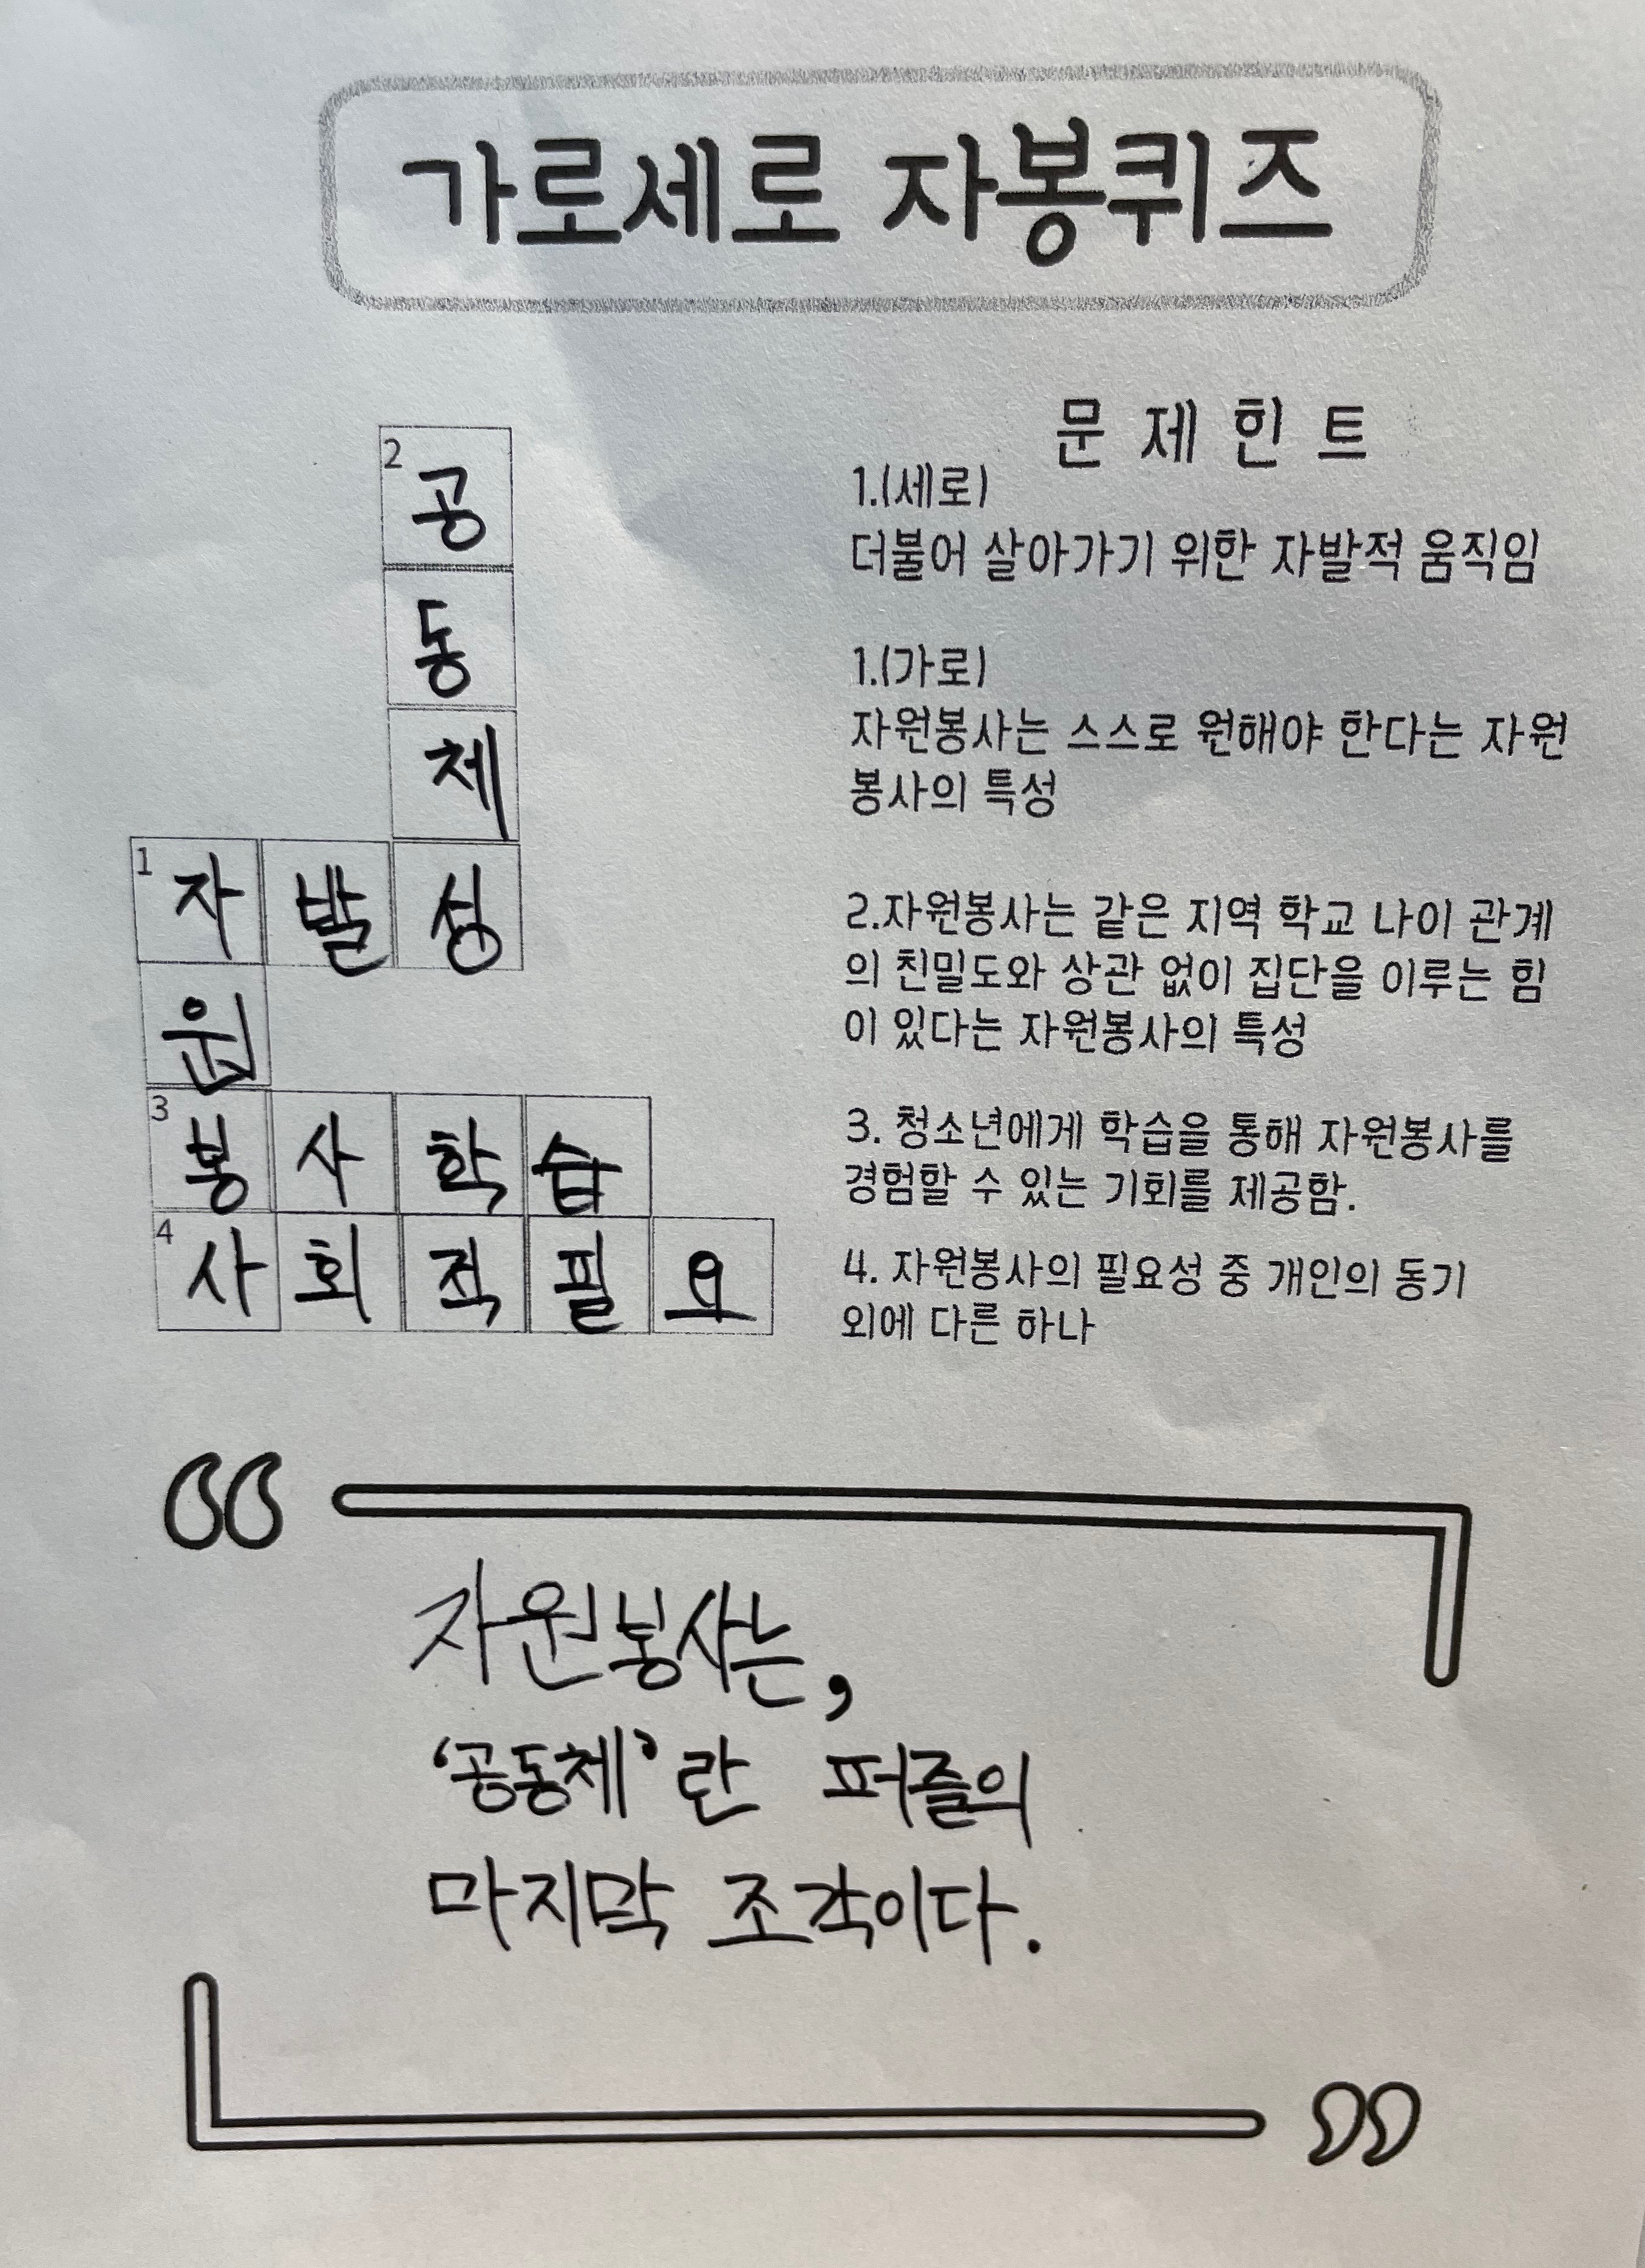 가로세로 자봉퀴즈
2
공
동
체
1
자 발 성
원
3
봉 사 학 습
4
사 회 적 필 요
문 제 힌 트
1.(세로)
더불어 살아가기 위한 자발적 움직임
1.(가로)
자원봉사는 스스로 원해야 한다는 자원
봉사의 특성
2.자원봉사는 같은 지역 학교 나이 관계
의 친밀도와 상관 없이 집단을 이루는 힘
이 있다는 자원봉사의 특성
3. 청소년에게 학습을 통해 자원봉사를
경험할 수 있는 기회를 제공함.
4. 자원봉사의 필요성 중 개인의 동기
외에 다른 하나
“
자원봉사는,
‘공동체’란 퍼즐의
마지막 조각이다.
”